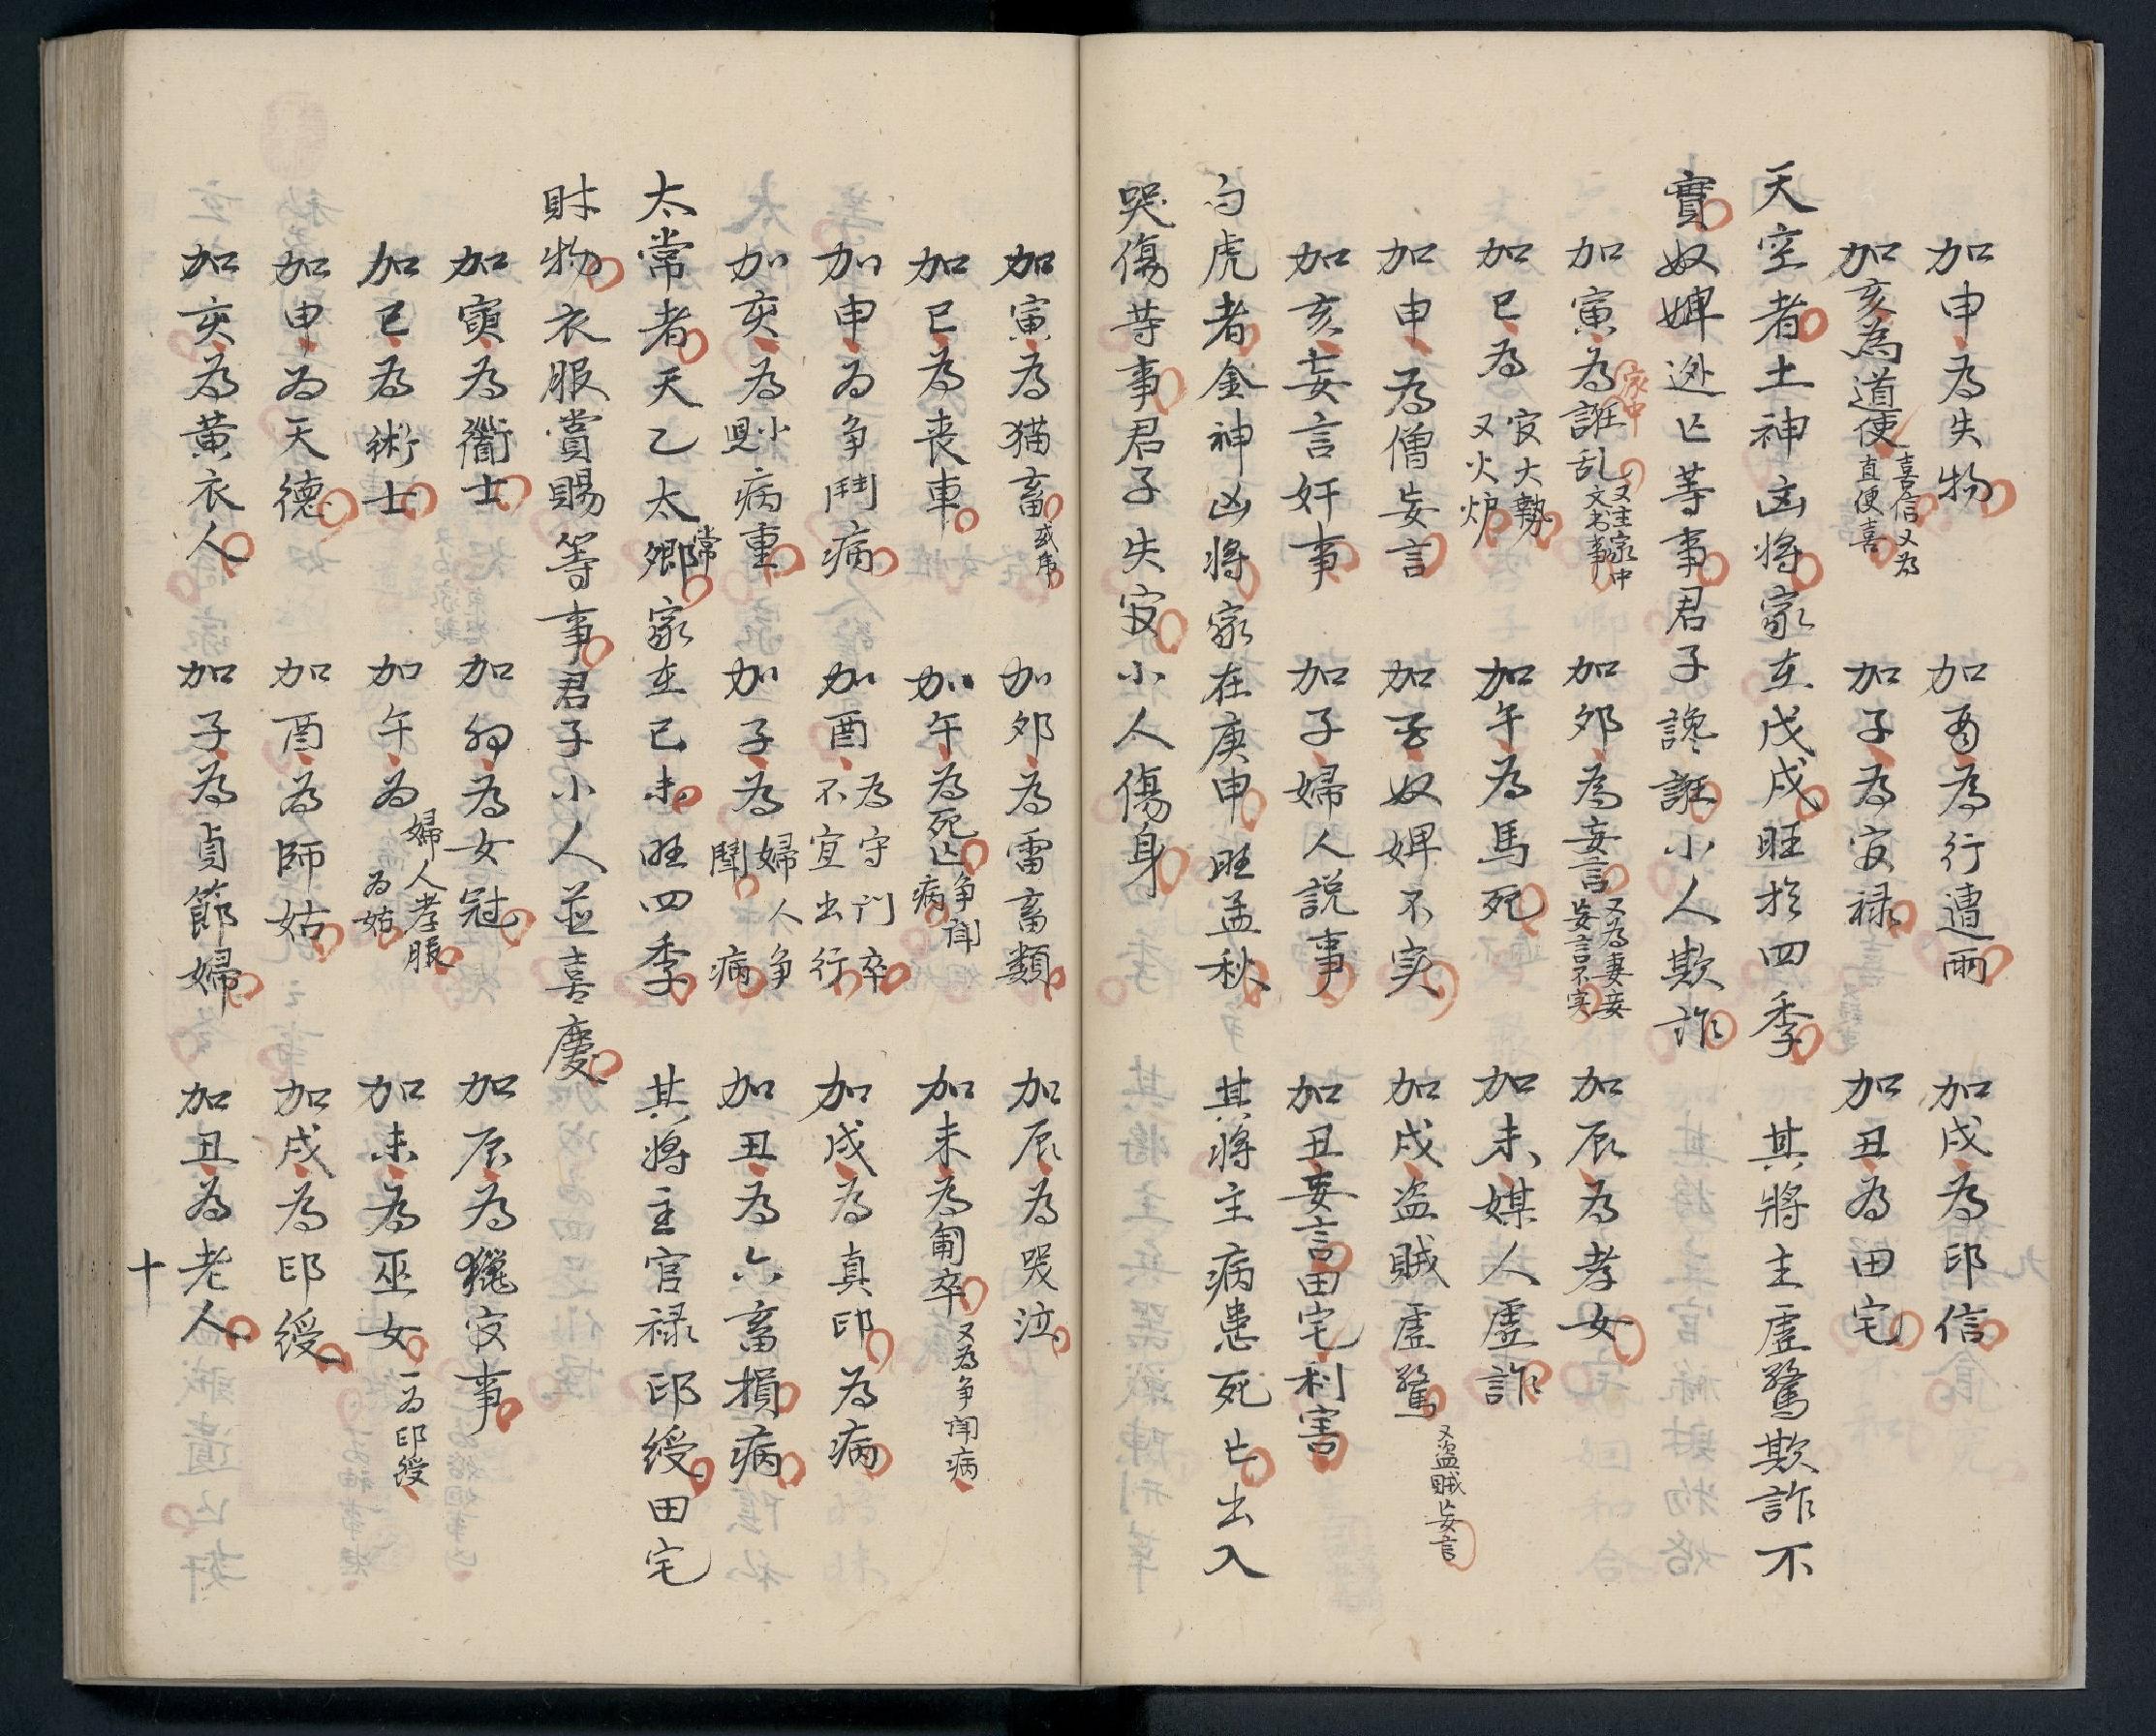 加申為失物　加酉為行遭雨　加戌為印信
加亥為道使 喜信又為直使喜　加子為官禄　加丑為田宅
天空者土神凶将家在戊戌旺於四季　其將主虛驚欺詐不
實奴婢逃亡等事君子讒誑小人欺詐
加寅為誑乱 家中 又主家中文書事　加夘為妄言 又為妻妾妄言不实　加辰為孝女
加巳為 官大勢又火炉　加午為馬死　加未媒人虛詐
加申為僧妄言　加酉奴婢不实　加戌盗賊虛驚 又盗賊妄言
加亥妄言奸事　加子婦人説事　加丑妄言田宅利害
白虎者金神凶将家在庚申旺孟秋　其將主病患死亡出入
哭傷等事君子失官小人傷身
加寅為猫畜 或角　加夘為雷畜類　加辰為哭泣
加巳為喪車　加午為死亡 争闘病　加未為葡卒 又為争闘病
加申為争鬥病　加酉 為守門卒不宜出行　加戌為真印為病
加亥為 小児病重　加子為 婦人争鬪病　加丑為六畜損病
太常者天乙太常卿家在己未旺四季　其將主官禄印綬田宅
財物衣服賞賜等事君子小人並喜慶
加寅為衞士　加夘為女冠　加辰為獵官事
加巳為術士　加午為 婦人孝服為姑　加未為巫女 一為印綬
加申為天德　加酉為師姑　加戌為印綬
加亥為黄衣人　加子為貞節婦　加丑為老人
十